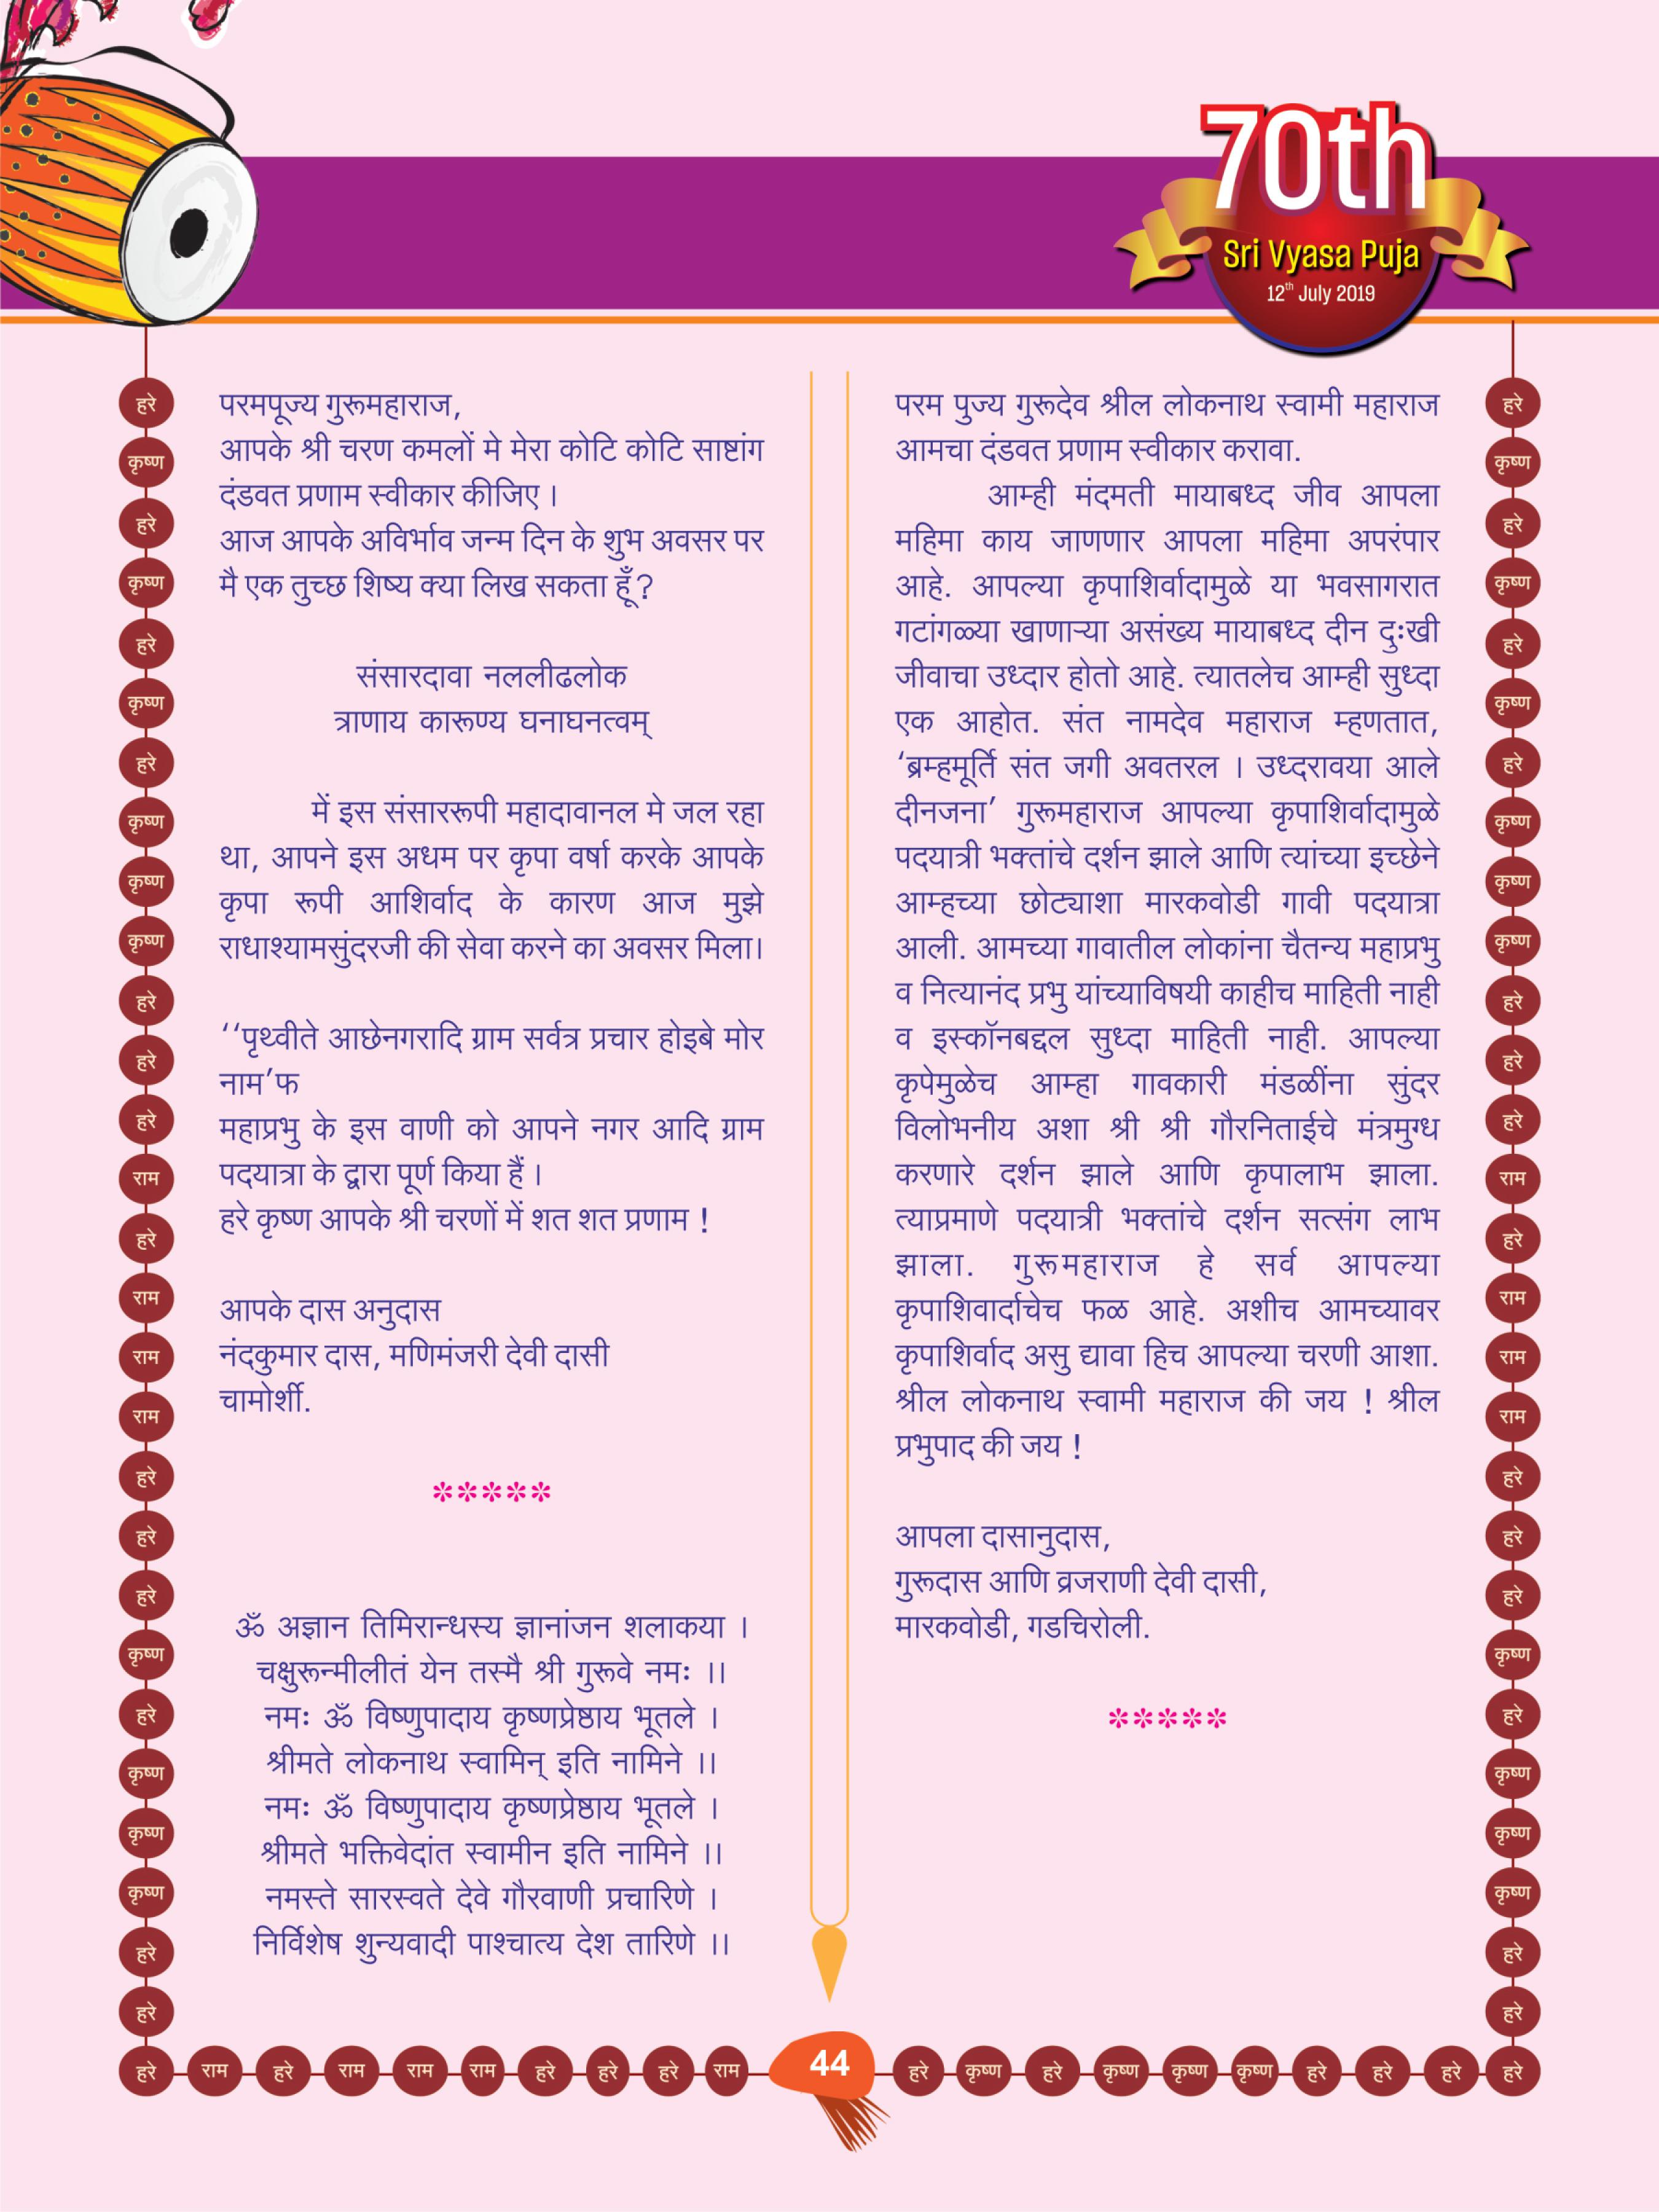 70th
Sri Vyasa Puja
12th July 2019
परमपूज्य गुरूमहाराज,
आपके श्री चरण कमलों मे मेरा कोटि कोटि साष्टांग
दंडवत प्रणाम स्वीकार कीजिए ।
आज आपके अविर्भाव जन्म दिन के शुभ अवसर पर
मै एक तुच्छ शिष्य क्या लिख सकता हूँ?
संसारदावा नललीढलोक
त्राणाय कारूण्य घनाघनत्वम्
में इस संसाररूपी महादावानल मे जल रहा
था, आपने इस अधम पर कृपा वर्षा करके आपके
कृपा रूपी आशिर्वाद के कारण आज मुझे
राधाश्यामसुंदरजी की सेवा करने का अवसर मिला।
‘‘पृथ्वीते आछेनगरादि ग्राम सर्वत्र प्रचार होइबे मोर
नाम’फ
महाप्रभु के इस वाणी को आपने नगर आदि ग्राम
पदयात्रा के द्वारा पूर्ण किया हैं ।
हरे कृष्ण आपके श्री चरणों में शत शत प्रणाम !
आपके दास अनुदास
नंदकुमार दास, मणिमंजरी देवी दासी
चामोर्शी.
*****
ॐ अज्ञान तिमिरान्धस्य ज्ञानांजन शलाकया ।
चक्षुरून्मीलीतं येन तस्मै श्री गुरूवे नमः ।।
नमः ॐ विष्णुपादाय कृष्णप्रेष्ठाय भूतले ।
श्रीमते लोकनाथ स्वामिन् इति नामिने ।।
नमः ॐ विष्णुपादाय कृष्णप्रेष्ठाय भूतले ।
श्रीमते भक्तिवेदांत स्वामीन इति नामिने ।।
नमस्ते सारस्वते देवे गौरवाणी प्रचारिणे ।
निर्विशेष शुन्यवादी पाश्चात्य देश तारिणे ।।
परम पुज्य गुरूदेव श्रील लोकनाथ स्वामी महाराज
आमचा दंडवत प्रणाम स्वीकार करावा.
आम्ही मंदमती मायाबध्द जीव आपला
महिमा काय जाणणार आपला महिमा अपरंपार
आहे. आपल्या कृपाशिर्वादामुळे या भवसागरात
गटांगळ्या खाणाऱ्या असंख्य मायाबध्द दीन दुःखी
जीवाचा उध्दार होतो आहे. त्यातलेच आम्ही सुध्दा
एक आहोत. संत नामदेव महाराज म्हणतात,
‘ब्रम्हमूर्ति संत जगी अवतरल । उध्दरावया आले
दीनजना’ गुरूमहाराज आपल्या कृपाशिर्वादामुळे
पदयात्री भक्तांचे दर्शन झाले आणि त्यांच्या इच्छेने
आम्हच्या छोट्याशा मारकवोडी गावी पदयात्रा
आली. आमच्या गावातील लोकांना चैतन्य महाप्रभु
व नित्यानंद प्रभु यांच्याविषयी काहीच माहिती नाही
व इस्कॉनबद्दल सुध्दा माहिती नाही. आपल्या
कृपेमुळेच आम्हा गावकारी मंडळींना सुंदर
विलोभनीय अशा श्री श्री गौरनिताईचे मंत्रमुग्ध
करणारे दर्शन झाले आणि कृपालाभ झाला.
त्याप्रमाणे पदयात्री भक्तांचे दर्शन सत्संग लाभ
झाला. गुरूमहाराज हे सर्व आपल्या
कृपाशिवार्दाचेच फळ आहे. अशीच आमच्यावर
कृपाशिर्वाद असु द्यावा हिच आपल्या चरणी आशा.
श्रील लोकनाथ स्वामी महाराज की जय ! श्रील
प्रभुपाद की जय !
आपला दासानुदास,
गुरूदास आणि व्रजराणी देवी दासी,
मारकवोडी, गडचिरोली.
*****
हरे
कृष्ण
हरे
कृष्ण
हरे
कृष्ण
हरे
कृष्ण
कृष्ण
कृष्ण
हरे
हरे
हरे
राम
हरे
राम
राम
राम
हरे
हरे
हरे
कृष्ण
हरे
कृष्ण
कृष्ण
कृष्ण
हरे
हरे
हरे
कृष्ण
हरे
कृष्ण
हरे
कृष्ण
हरे
कृष्ण
कृष्ण
कृष्ण
हरे
हरे
हरे
राम
हरे
राम
राम
राम
हरे
हरे
हरे
कृष्ण
हरे
कृष्ण
कृष्ण
कृष्ण
हरे
हरे
हरे राम हरे राम राम राम हरे हरे हरे राम 44 हरे कृष्ण हरे कृष्ण कृष्ण कृष्ण हरे हरे हरे हरे